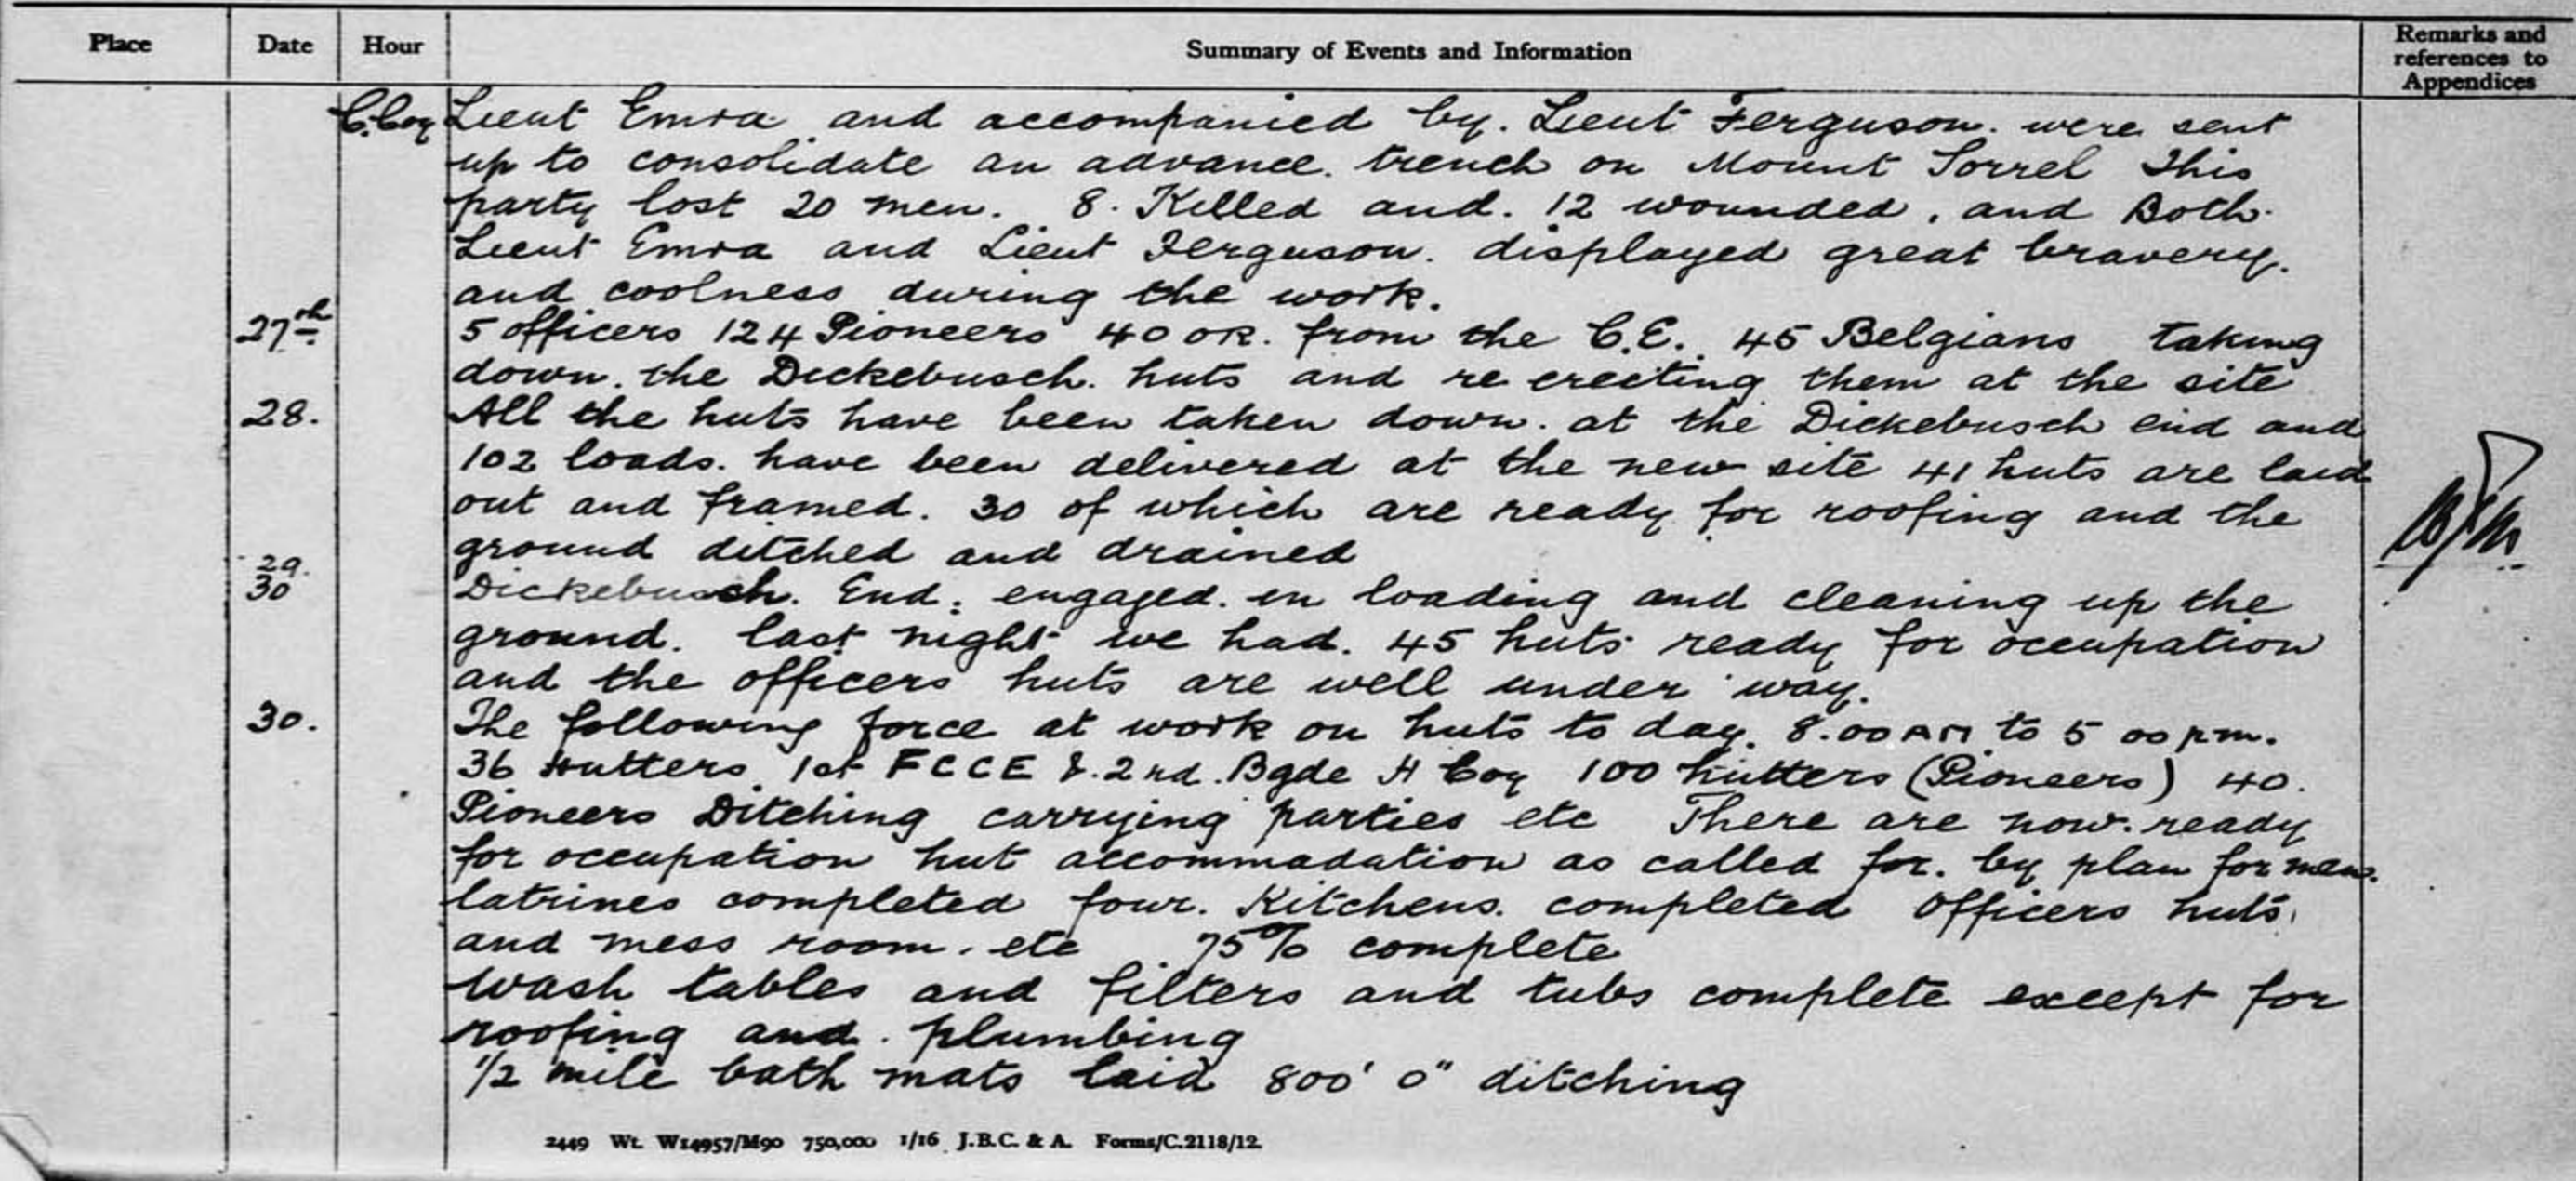 Place Date Hour Summary of Events and Information Remarks and references to Appendices
C.Coy Lieut Emra and accompanied by. Lieut Ferguson. were sent
up to consolidate an advance. trench on Mount Sorrel This
party lost 20 men. 8. Killed and. 12 wounded, and Both.
Lieut Emra and Lieut Ferguson. displayed great bravery.
and coolness during the work.
27th 5 officers 124 Pioneers 40 OR. from the C.E. 45 Belgians taking
down. the Dickebusch. huts and re erecting them at the site
28. All the huts have been taken down. at the Dickebusch end and
102 loads. have been delivered at the new site 41 huts are laid
out and framed. 30 of which are ready for roofing and the
ground ditched and drained
29.
30 Dickebusch. End: engaged. in loading and cleaning up the
ground. last night we had. 45 huts ready for occupation
and the officers huts are well under way.
30. The following force at work on huts to day. 8.00 AM to 5 00 pm.
36 Hutters 1st FCCE &. 2nd. Bgde H Coy 100 hutters (Pioneers) 40.
Pioneers Ditching carrying parties etc There are now. ready
for occupation hut accommadation as called for. by plan for men.
latrines completed four. Kitchens. completed Officers huts.
and mess room. etc 75% complete
Wash tables and filters and tubs complete except for
roofing and. plumbing
1/2 mile bath mats laid 800' 0" ditching
2449 Wt. W14957/M90 750,000 1/16 J.B.C. & A. Forms/C.2118/12.